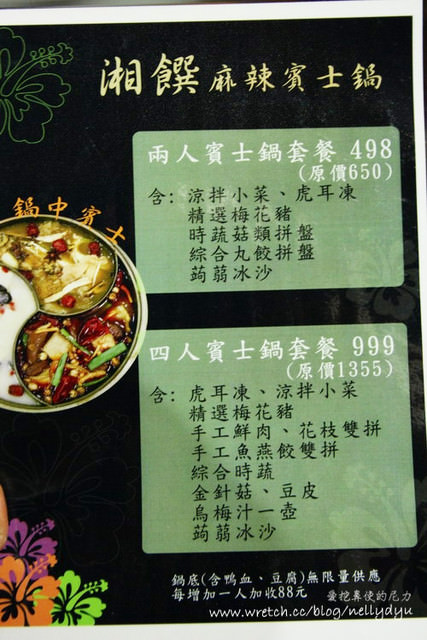 湘饌 麻辣賓士鍋
兩人賓士鍋套餐 498
(原價650)
含: 涼拌小菜、虎耳凍
精選梅花豬
時蔬菇類拼盤
綜合丸餃拼盤
蒟蒻冰沙
鍋中賓士
四人賓士鍋套餐 999
(原價1355)
含: 虎耳凍、涼拌小菜
精選梅花豬
手工鮮肉、花枝雙拼
手工魚燕餃雙拼
綜合時蔬
金針菇、豆皮
烏梅汁一壺
蒟蒻冰沙
鍋底(含鴨血、豆腐)無限量供應
每增加一人加收88元
愛挖鼻使的尼力
www.wretch.cc/blog/nellydyu